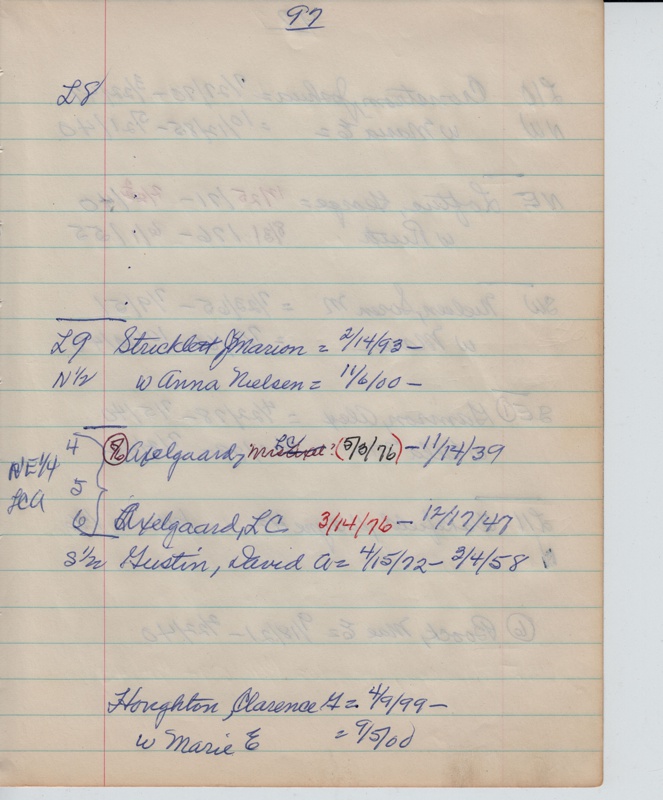 97
L8
L9 Stricklett J Marion = 2/14/93 –
N 1/2 w Anna Nielsen = 11/6/00 –
4 % Axelgaard, (5/3/76) – 11/14/39
NE 1/4
5
LCA
6 Axelgaard, L C 3/14/76 – 12/17/47
S 1/2 Gustin, David A = 4/15/72 – 3/4/58
Houghton, Clarence G = 4/9/99 –
w Marie E = 9/5/00